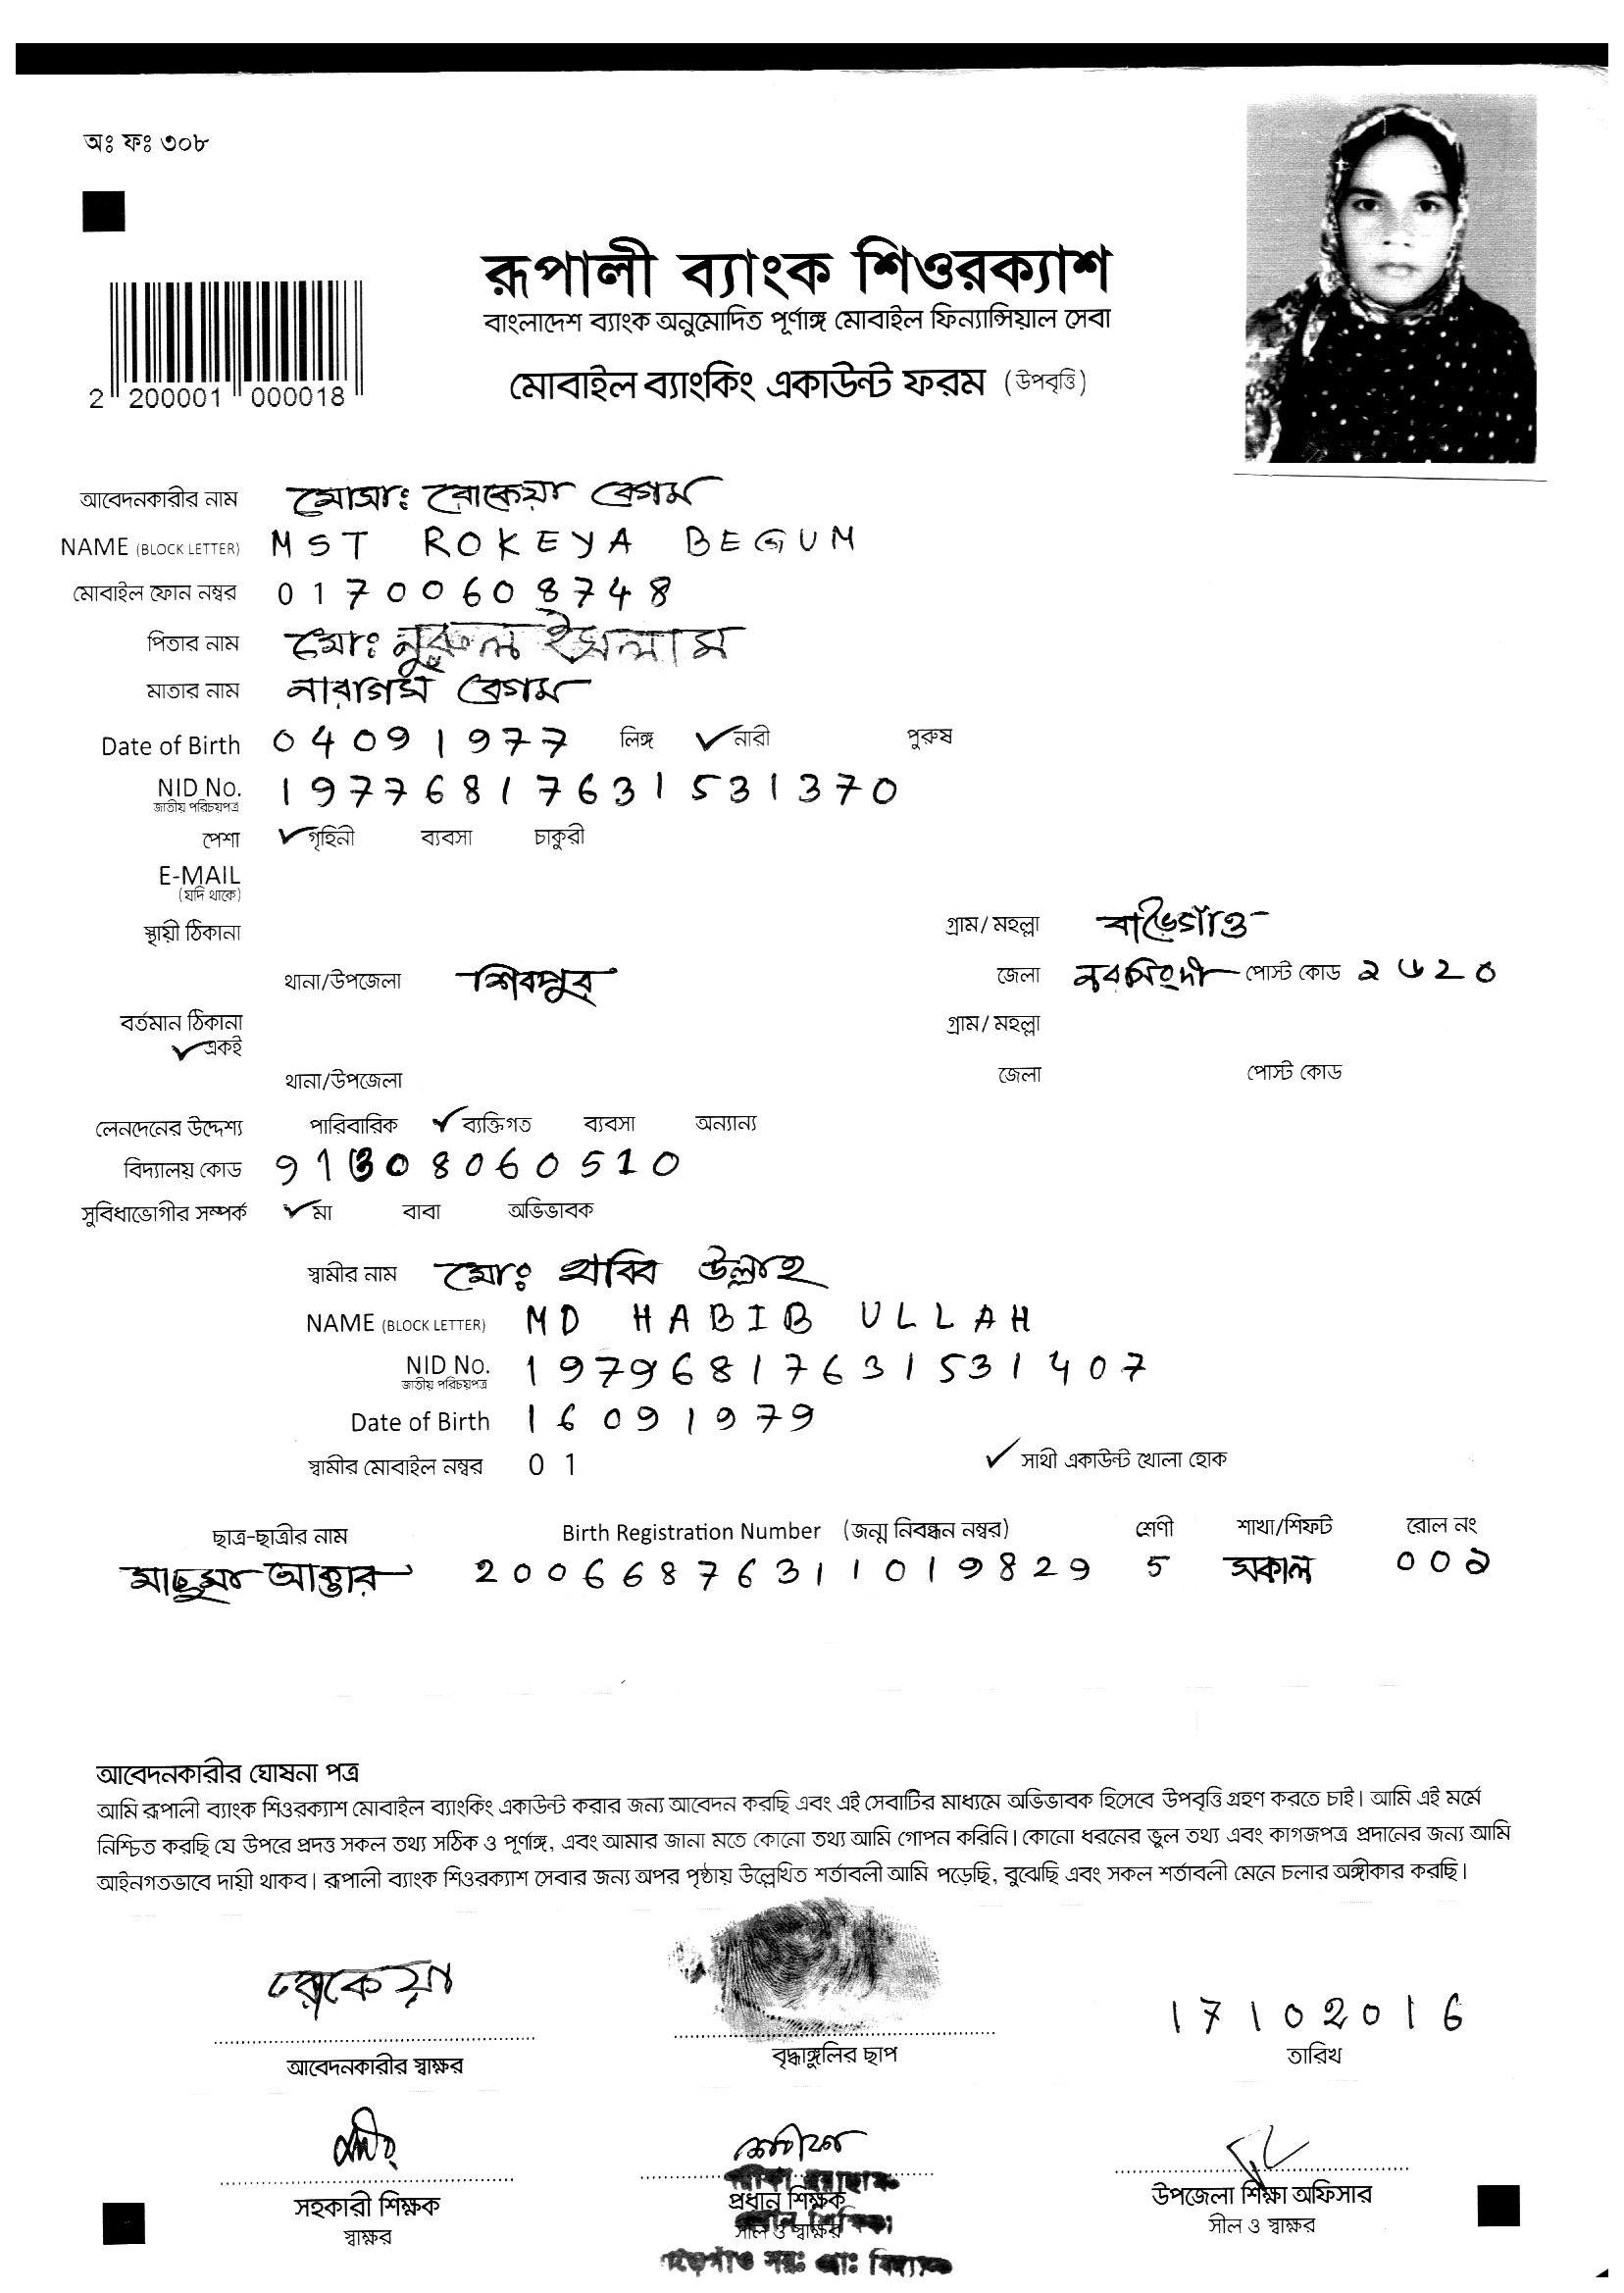 অঃ ফঃ ৩০৮
রূপালী ব্যাংক শিওরক্যাশ
বাংলাদেশ ব্যাংক অনুমোদিত পূর্ণাঙ্গ মোবাইল ফিন্যান্সিয়াল সেবা
মোবাইল ব্যাংকিং একাউন্ট ফরম (উপবৃত্তি)
2 200001 000018
আবেদনকারীর নাম মোসাঃ রোকেয়া বেগম
NAME (BLOCK LETTER) MST ROKEYA BEGUM
মোবাইল ফোন নম্বর 01700608748
পিতার নাম মোঃ নুরুল ইসলাম
মাতার নাম নারগিস বেগম
Date of Birth 04091977 লিঙ্গ ✓ নারী পুরুষ
NID No. 19776817631531370
জাতীয় পরিচয়পত্র
পেশা ✓ গৃহিনী ব্যবসা চাকুরী
E-MAIL
(যদি থাকে)
স্থায়ী ঠিকানা গ্রাম/ মহল্লা বাড়ৈগাঁও
থানা/উপজেলা শিবপুর জেলা নরসিংদী পোস্ট কোড ২৬20
বর্তমান ঠিকানা গ্রাম/ মহল্লা
✓ একই
থানা/উপজেলা জেলা পোস্ট কোড
লেনদেনের উদ্দেশ্য পারিবারিক ✓ ব্যক্তিগত ব্যবসা অন্যান্য
বিদ্যালয় কোড 91308060510
সুবিধাভোগীর সম্পর্ক ✓ মা বাবা অভিভাবক
স্বামীর নাম মোঃ হাবিব উল্লাহ
NAME (BLOCK LETTER) MD HABIB ULLAH
NID No. 19796817631531407
জাতীয় পরিচয়পত্র
Date of Birth 16091979
স্বামীর মোবাইল নম্বর 01 ✓ সাথী একাউন্ট খোলা হোক
ছাত্র-ছাত্রীর নাম Birth Registration Number (জন্ম নিবন্ধন নম্বর) শ্রেণী শাখা/শিফট রোল নং
মাছুমা আক্তার 20066876311019829 5 সকাল 00২
আবেদনকারীর ঘোষনা পত্র
আমি রূপালী ব্যাংক শিওরক্যাশ মোবাইল ব্যাংকিং একাউন্ট করার জন্য আবেদন করছি এবং এই সেবাটির মাধ্যমে অভিভাবক হিসেবে উপবৃত্তি গ্রহণ করতে চাই। আমি এই মর্মে
নিশ্চিত করছি যে উপরে প্রদত্ত সকল তথ্য সঠিক ও পূর্ণাঙ্গ, এবং আমার জানা মতে কোনো তথ্য আমি গোপন করিনি। কোনো ধরনের ভুল তথ্য এবং কাগজপত্র প্রদানের জন্য আমি
আইনগতভাবে দায়ী থাকব। রূপালী ব্যাংক শিওরক্যাশ সেবার জন্য অপর পৃষ্ঠায় উল্লেখিত শর্তাবলী আমি পড়েছি, বুঝেছি এবং সকল শর্তাবলী মেনে চলার অঙ্গীকার করছি।
রোকেয়া 17102016
আবেদনকারীর স্বাক্ষর বৃদ্ধাঙ্গুলির ছাপ তারিখ
সহকারী শিক্ষক প্রধান শিক্ষক উপজেলা শিক্ষা অফিসার
স্বাক্ষর সীল ও স্বাক্ষর সীল ও স্বাক্ষর